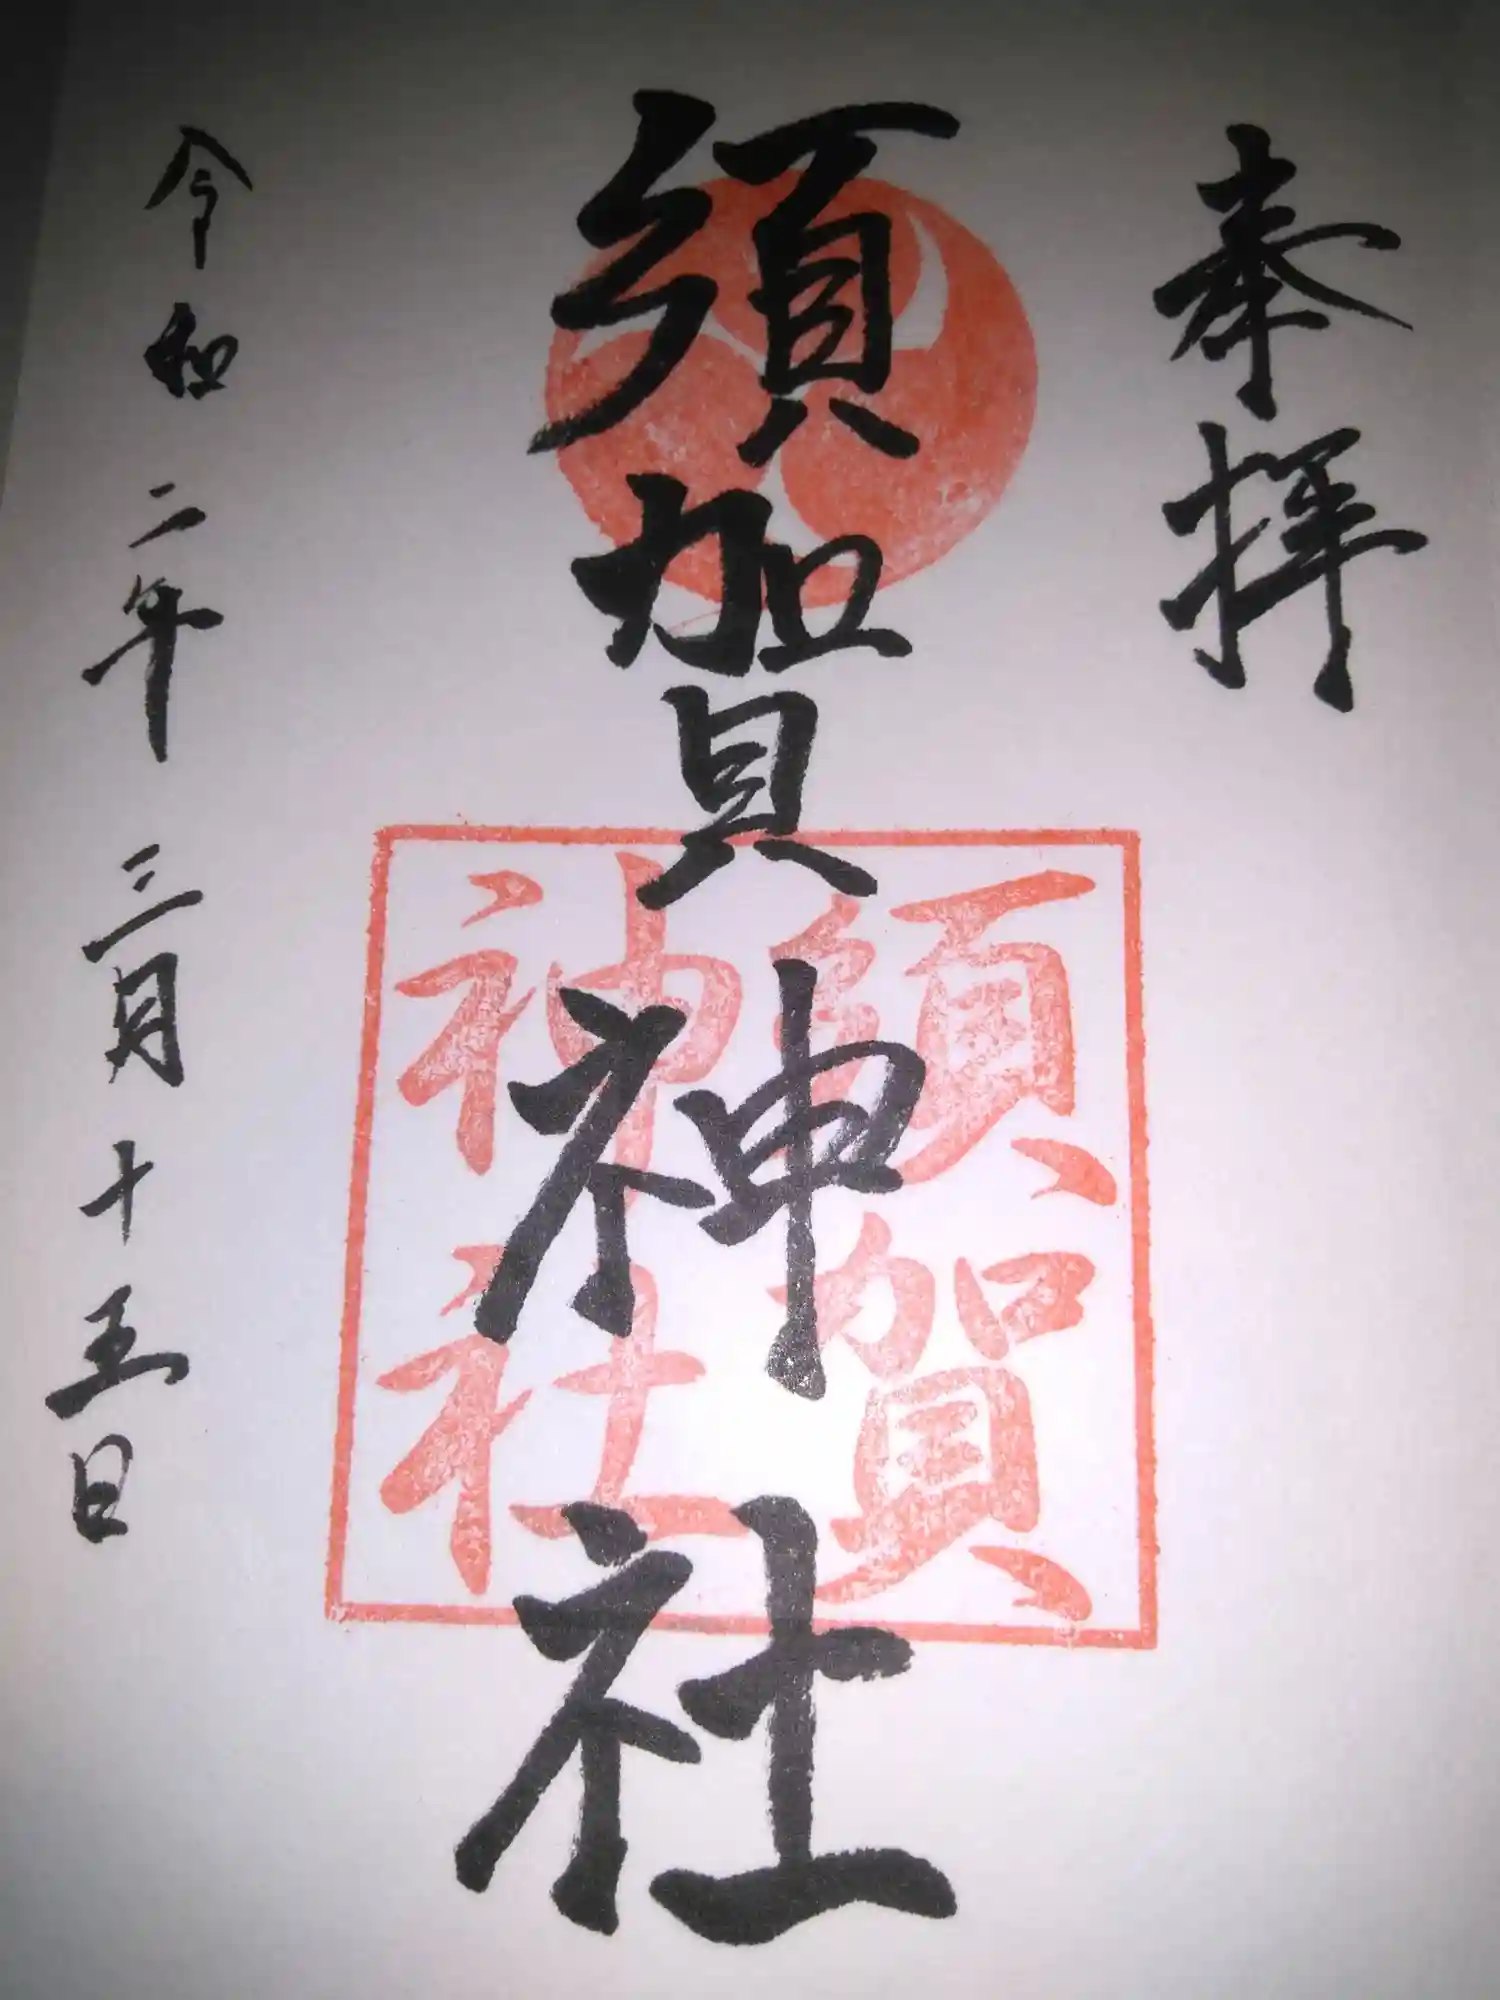 奉拝
須賀神社
須賀
神社
令和二年三月十五日